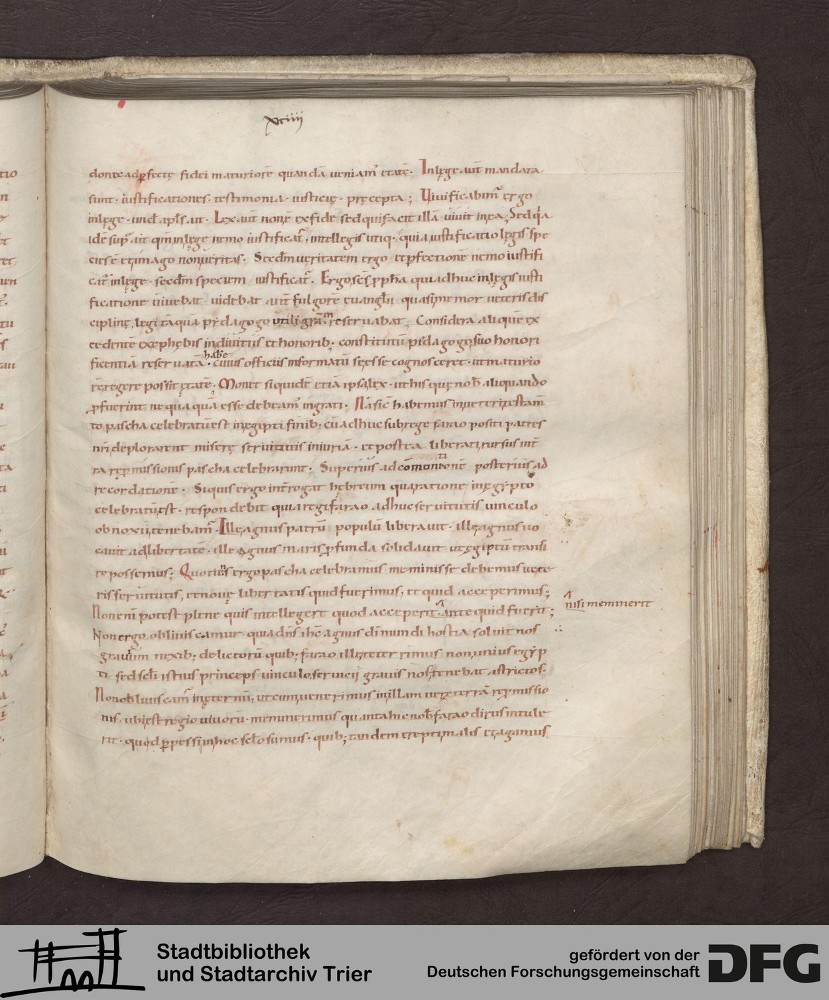 xciiii
donec ad pfecte fidei maturiore quandā veniam' etatē. In lege aut mandata
sunt. iustificationes. testimonia. iusticie. precepta; Vivificabim' ergo
in lege. unde apls ait. Lex aut non ē ex fide sed qui facit illa vivit in ea; Sed
ide supra ait qm in lege nemo iustificat', intellegis utiq. quia iustificatio legis spe
cies e et imago non veritas. Secdm veritatem ergo et pfectionē nemo iustifi
cat' in lege. secdm speciem iustificat'. Ergo qui adhuc in legis iusti
ficatione vivebat videbat aut fulgorē evangelii quasi in
cipline, legitā qua pedagogo utili reservabat; Considera aliquē ex
cedentē ex ephebis in divitiis et honorib. constitutū pedagogo suo honori
ficentiā reservatā habe. cuius officiis informatū se esse cognosceret. ut maturio
re regere possit etatē. Monet siquidē etiā ipsa lex. ut his qui nob aliquando
pfuerint ne quaquā esse debeam' ingrati. Nā sic habemus in veteri testam
to pascha celebratū est in egipti finib; cū adhuc sub rege farao positi patres
nri deplorarent misere servitutis iniuriā. et postea liberati rursus in
ra repmissionis pascha celebrarunt. Superius ad cōmonitionē posterius ad
recordationē. Siquis ergo introgat hebreum qua ratione in egypto
celebratū est. respondebit quia regi farao adhuc servitutis vinculo
obnoxii tenebam'. Ille agnus patrū populū liberavit. ille agnus vo
cavit ad libertatē. ille agnus maris pfunda solidavit ut egiptū transi
re possemus; Quotiens ergo pascha celebramus meminisse debemus vete
ris servitutis, et nove libertatis quid fuerimus, et quid acceperimus;
Non enī potest plene quis intellegere quod acceperit ante quid fuerit;
nisi meminerit
Non ergo obliviscamur. qua dns ihc agnus di mundi hostia solvit nos
gravium nexib; delictorū quib; farao ille teterrimus non unius egyp
ti sed scli istius princeps vinculo servicii gravis nos tenebat astrictos.
Non obliviscam' in eternū, ut cum venerimus in illam vere terrā repmissio
nis. ubi est regio vivorū. meminerimus quanta hic nob farao dirus intule
rit. quod ppessi in hoc sclo sumus. quib; tandem erepti malis et agamus
Stadtbibliothek
und Stadtarchiv Trier
gefördert von der
Deutschen Forschungsgemeinschaft
DFG